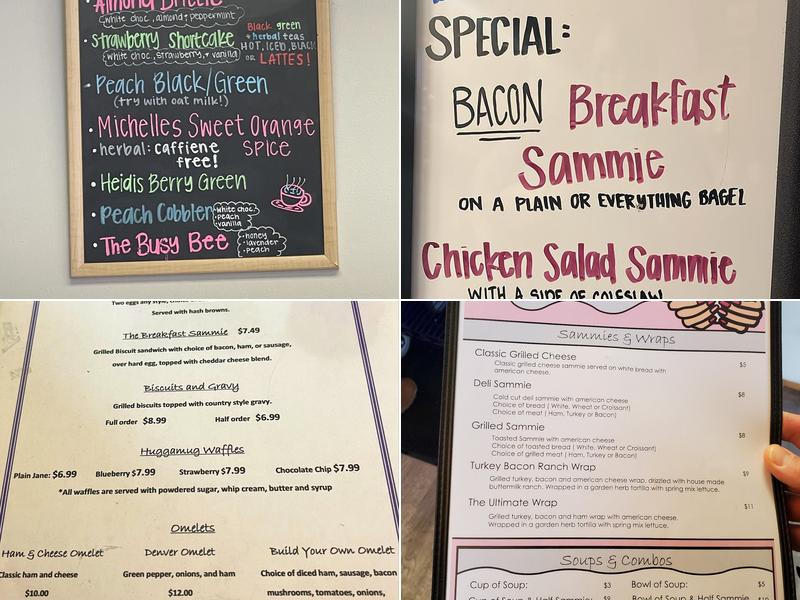 Almond Breeze
(white choc, almond & peppermint)
• Strawberry Shortcake
(white choc, strawberry, + vanilla)
Black green
+ herbal teas
HOT, ICED, BLACK
or LATTES!
• Peach Black/Green
(try with oat milk!)
• Michelles Sweet Orange
SPICE
• herbal: caffiene
free!
• Heidis Berry Green
• Peach Cobbler
• white choc
• peach
• vanilla
• The Busy Bee
• honey
• lavender
• peach
SPECIAL:
BACON Breakfast
Sammie
ON A PLAIN OR EVERYTHING BAGEL
Chicken Salad Sammie
WITH A SIDE OF COLESLAW!
Two eggs any style,
Served with hash browns.
The Breakfast Sammie $7.49
Grilled Biscuit sandwich with choice of bacon, ham, or sausage,
over hard egg, topped with cheddar cheese blend.
Biscuits and Gravy
Grilled biscuits topped with country style gravy.
Full order $8.99 Half order $6.99
Huggamug Waffles
Plain Jane: $6.99 Blueberry $7.99 Strawberry $7.99 Chocolate Chip $7.99
*All waffles are served with powdered sugar, whip cream, butter and syrup
Omelets
Ham & Cheese Omelet Denver Omelet Build Your Own Omelet
Classic ham and cheese Green pepper, onions, and ham Choice of diced ham, sausage, bacon
$10.00 $12.00 mushrooms, tomatoes, onions,
Sammies & Wraps
Classic Grilled Cheese $5
Classic grilled cheese sammie served on white bread with
american cheese.
Deli Sammie $8
Cold cut deli sammie with american cheese
Choice of bread ( White, Wheat or Croissant)
Choice of meat ( Ham, Turkey or Bacon)
Grilled Sammie $8
Toasted Sammie with american cheese
Choice of toasted bread ( White, Wheat or Croissant)
Choice of grilled meat ( Ham, Turkey or Bacon)
Turkey Bacon Ranch Wrap $9
Grilled turkey, bacon and american cheese wrap, drizzled with house made
buttermilk ranch. Wrapped in a garden herb tortilla with spring mix lettuce.
The Ultimate Wrap $11
Grilled turkey, bacon and ham wrap with american cheese.
Wrapped in a garden herb tortilla with spring mix lettuce.
Soups & Combos
Cup of Soup: $3 Bowl of Soup: $5
Cup of Soup & Half Sammie: $9 Bowl of Soup & Half Sammie $10